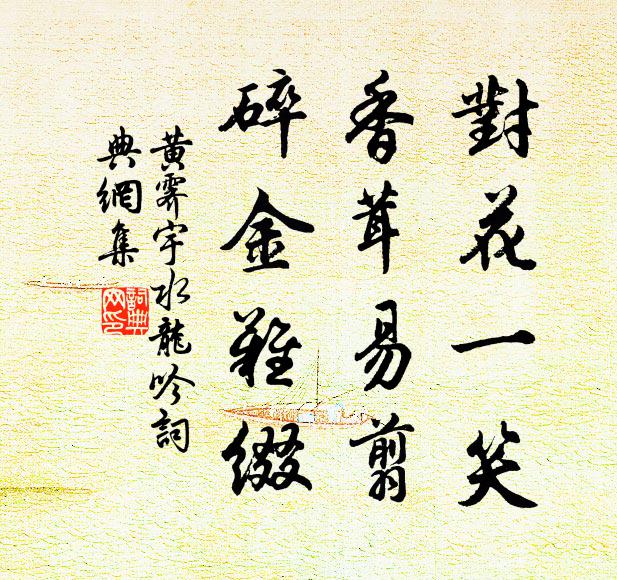 對花一笑
香茸易剪
碎金難綴
黄霽宇水龍吟詞
典網集
詞典
网印